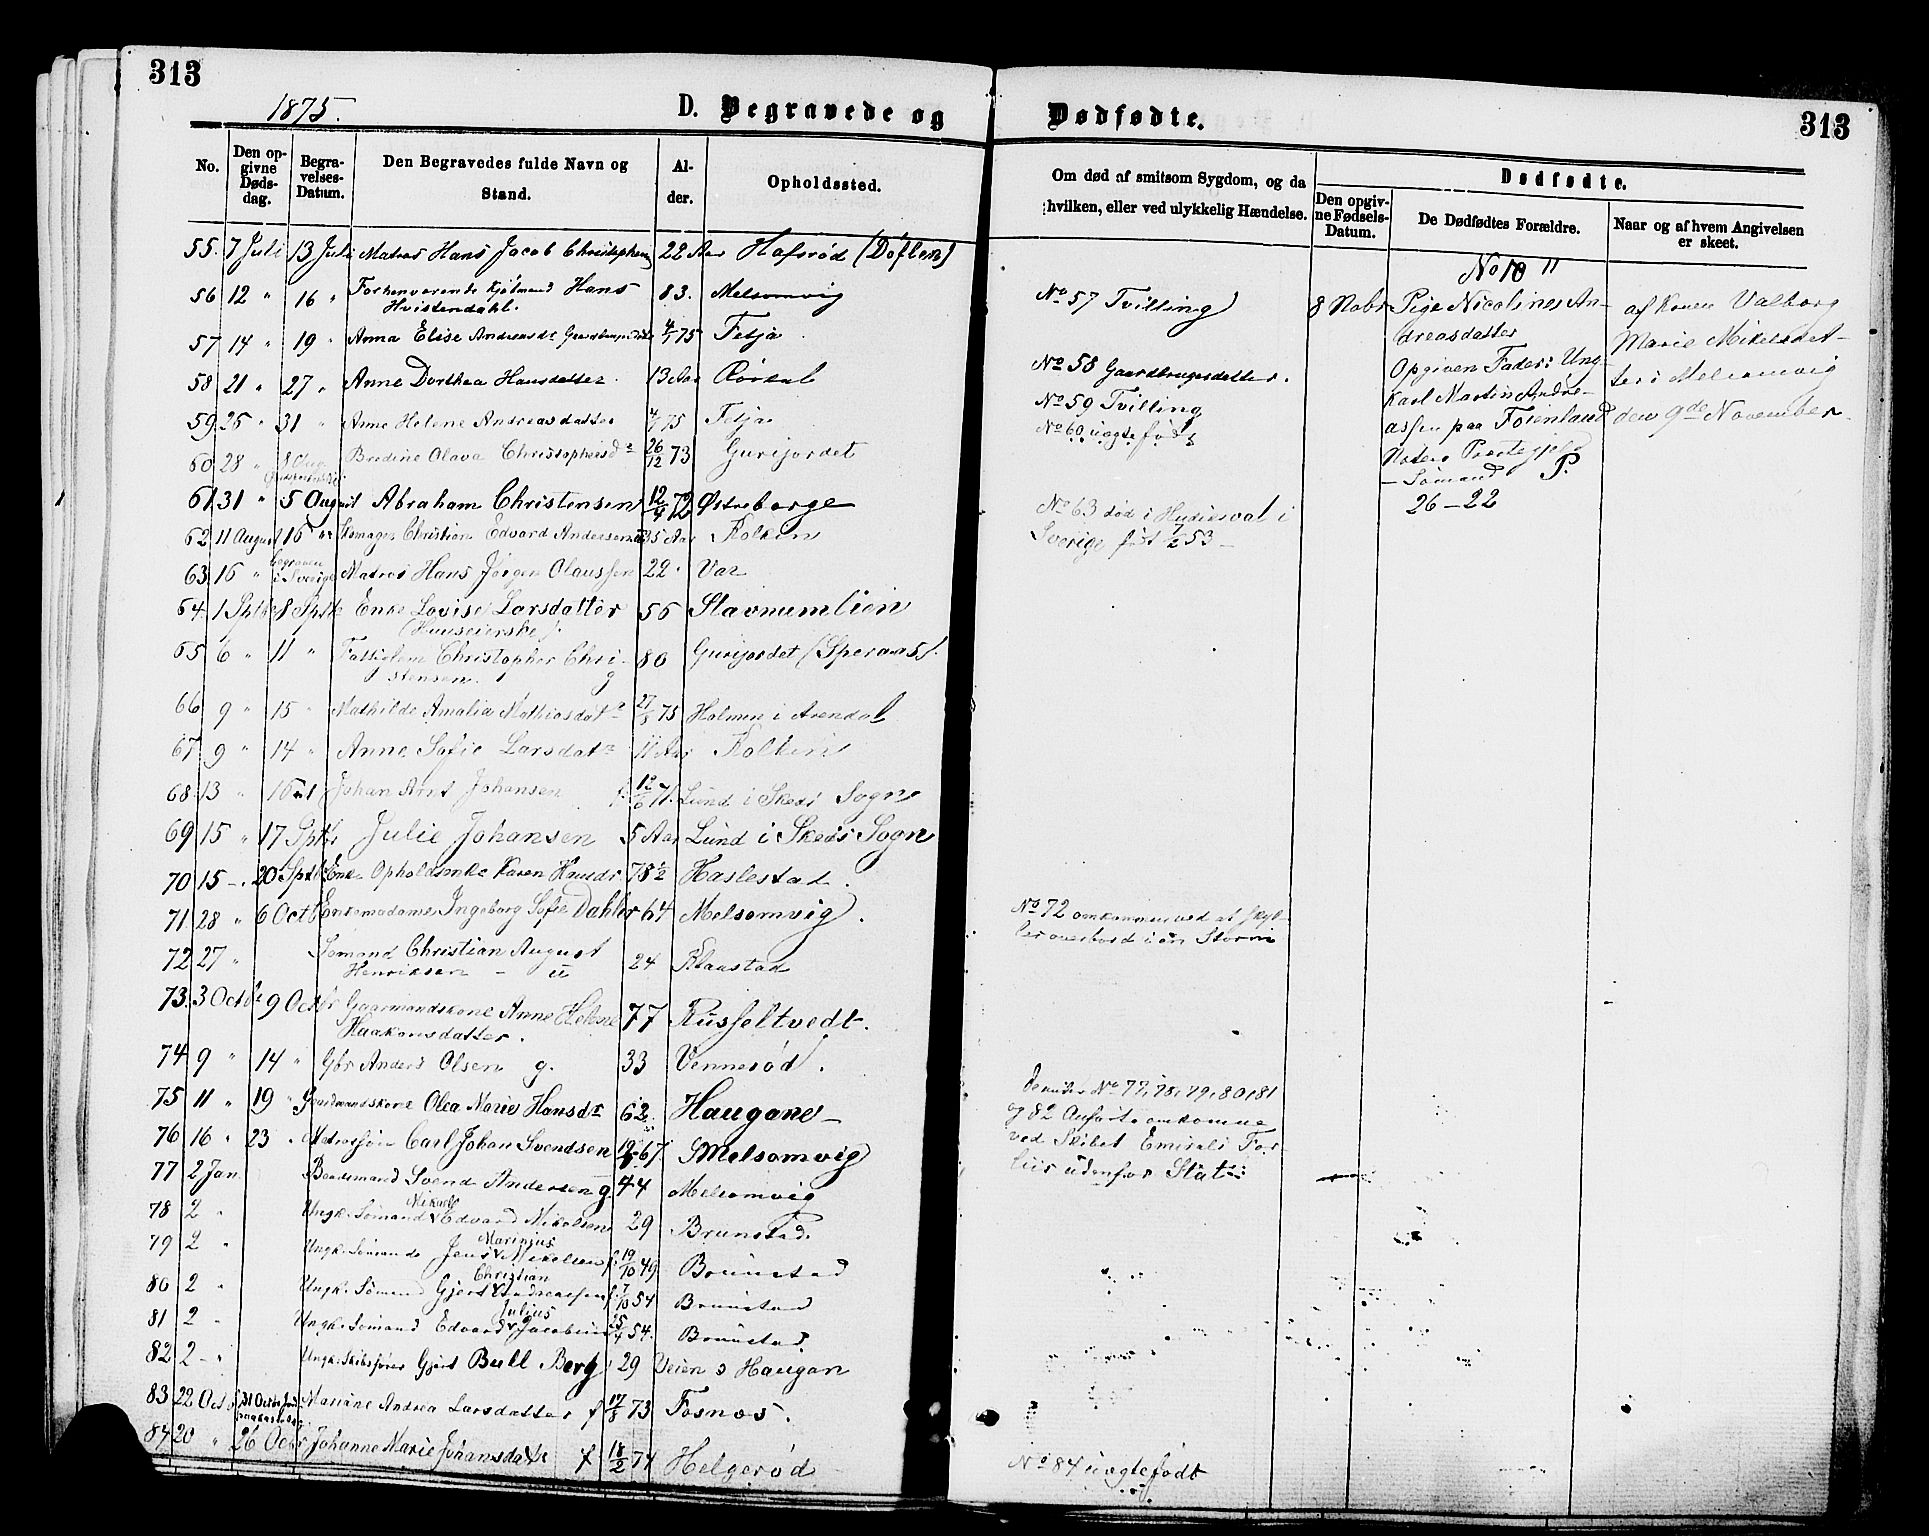 313
1875.
D. Begravede og
Dødfødte.
313
No.
Den opgivne Dødsdag.
Begravelses-Datum.
Den Begravedes fulde Navn og Stand.
Alder.
Opholdssted.
Om død af smitsom Sygdom, og da hvilken, eller ved ulykkelig Hændelse.
Dødfødte.
Den opgivne Fødsels-Datum.
De Dødfødtes Forældre.
Naar og af hvem Angivelsen er skeet.
55. 7 Juli 13 Juli Matros Hans Jacob Christophersen 22 Aar Hafsrød (Døflen)
56 12 " 16 " Forhenværende Kjølmand Hans
Hvistendahl. 83. Melsomvig
57 14 " 19 " Anna Elise Andreasdt 4/7 75 Fetja
58 21 " 27 " Anne Dorthea Hansdatter. 13 Aar
59. 25 " 31 " Anne Helene Andreasdatter 4/7 75 Fetja
60 28 " 8 Aug. Bredine Olava Christophersdr 26/12 73 Gurijordet
61. 31 " 5 August Abraham Christensen 12/4 72 Østreborge
62 11 August 16 " Skomager Christian Edvard Andersen 35 Aar Rolkin
63. 16 " begraven
i Sverige Matros Hans Jørgen Olaussen 22 " Var
64. 1 Sptbr 8 Sptbr Enke Lovise Larsdatter 56 Stavnumlien
(Huuseierske).
65 6 " 11 " Christopher Chri- 80 Gurijordet (Speraas).
stensen.
66 9 " 15 " Mathilde Amalia Mathiasdatr 75 Holmen i Arendal
67. 9 " 14 " Anne Sofie Larsdatr 11 Aar Rolkin
68. 13 " 16 Johan Arnt Johansen f. 71. Lund i Skeds Sogn
69 15 " 17 Sptbr Julie Johansen 5 Aar Lund i Skeds Sogn
70 15 – . 20 Sptbr Enke Opholdsenke Karen Hansdr 78½ Haslestad.
71. 28 " 6 Octbr Enkemadame Ingeborg Sofie Dahler 64 Melsomvig.
72 27 " Sømand Christian August
Henriksen – u 24 Flaustad
73. 3 Octbr 9 Octbr Gaarmandskone Anne Helene 77 Russeltvedt.
Haakonsdatter.
74 9 " 14 " Gbr Anders Olsen g. 33 Vennerød.
75 11 " 19 " Gaardmandskone Olea Marie Hansdtr 62 Haugane –
76 16 " 23 " Matrossøn Carl Johan Svendsen 67. Melsomvig
77 2 Jan Baadsmand Svend Andersen g. 44 Melsomvig
78 2 " Ungk. Sømand Mikael Edvard Mikelsen 29 Brunstad.
79 2 " Ungk. Sømand Jens Marinius Mikelsen f. 19/10 49 Brunstad
80 2 " Ungk. Sømand Gjert Christian Andreassen f. 7/10 54 Brunstad
81 2 " Ungk. Sømand Edvard Julius Jacobsen 25/4 54. Brunstad
82 2 – " Ungk. Skibsfører Gjert Bull Berg 29 Veien s Haugan
83 22 Octbr 31 Octbr Mariane Andrea Larsdatter f 17/8 73 Fosnæs.
84 20 " 26 Octbr Johanne Marie Johansdatr f 18/2 74 Helgerød
No 57 Tvilling
No 58 Gaardbrugerdatter.
No 59 Tvilling
No 60 uægte født
No 63 død i Hudiksval i
Sverige født 7/2 53 –
No 72 omkommen ved at skyl-
les overbord i en Storm
Denunder No 77, 78, 79, 80, 81
og 82 Anførte omkomne
ved Skibet Emirali For-
liis udenfor Stat
No 84 uægte født
No 10 "
8 Nobr
Pige Nicolines An-
dreasdatter
Opgiven Fader: Ung-
Karl Martin Andre-
assen paa Foienland
– Sømand P.
26 – 22
af Konen Valborg
Marie Mikelsdat-
ter i Melsomvig
den 9de November.